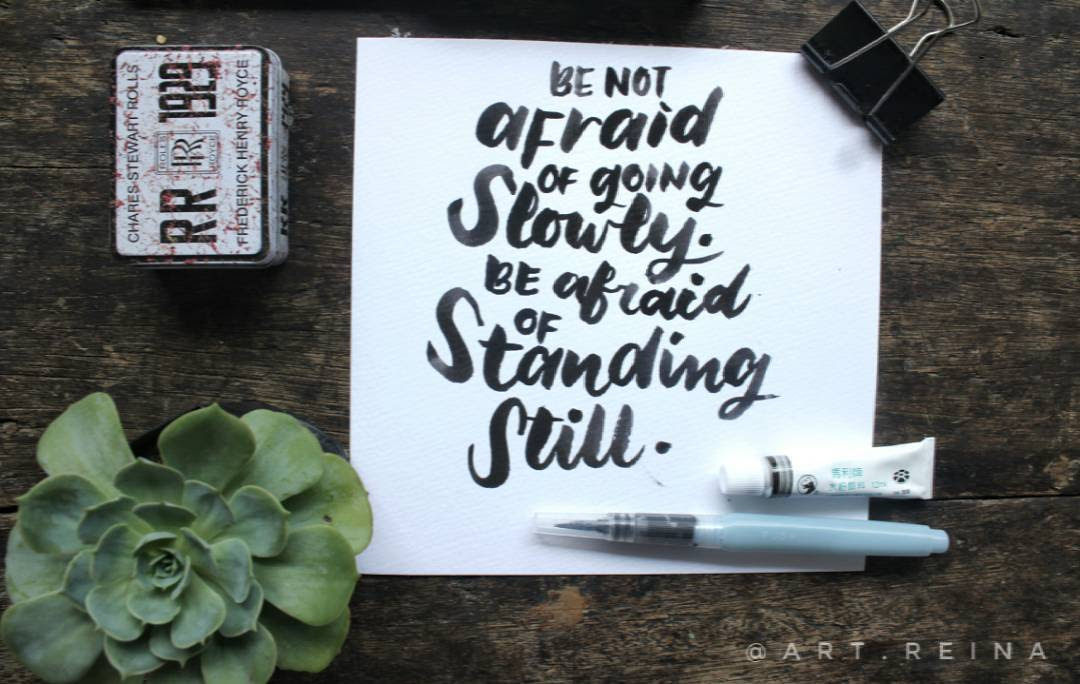 BE NOT
afraid
OF gOING
Slowly.
BE afraid
OF
Standing
Still.
CHARES STEWART ROLLS
RR 1929
ROLLS
RR
ROYCE
FREDERICK HENRY ROYCE
12ml
@ART.REINA